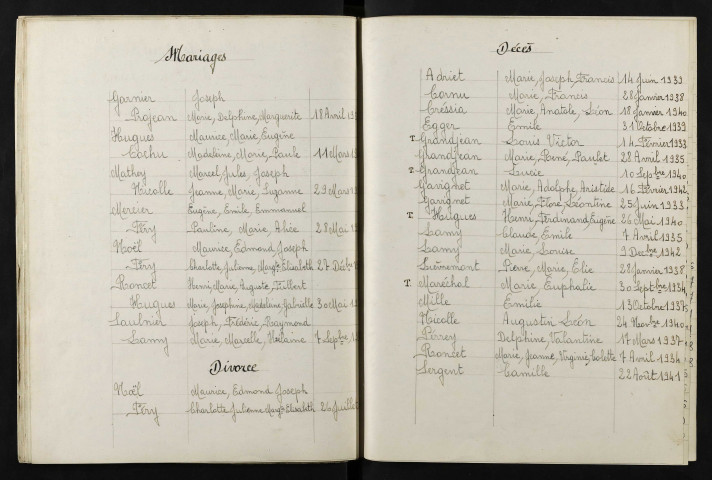 Mariages
Garnier Joseph
Projean Marie, Delphine, Marguerite 18 Avril 19
Hugues Maurice, Marie, Eugène
Cachu Madeleine, Marie, Paule 11 Mars 19
Mathey Marcel, Jules, Joseph
Nicolle Jeanne, Marie, Suzanne 23 Mars 19
Mercier Eugène, Emile, Emmanuel
Féry Pauline, Marie, Alice 28 Mai 19
Noël Maurice, Edmond, Joseph
Féry Charlotte, Julienne, Margte Elisabeth 27 Décbre
Roncet Henri, Marie, Auguste, Hubert
Hugues Marie, Joséphine, Madeleine, Gabrielle 30 Mai 19
Saulnier Joseph, Frédéric, Raymond
Lamy Marie, Marcelle, 7 Sepbre
Divorce
Noël Maurice, Edmond, Joseph
Féry Charlotte Julienne Margte Elisabeth 26 Juillet
Décès
Adriet Marie, Joseph, Francis 14 Juin 1939
Cornu Marie, Francis 28 Janvier 1938
Cressia Marie, Anatole, Léon 18 Janvier 1940
Egger Emile 31 Octobre 1939
T. Grandjean Louis Victor 14 Février 1933
Grandjean Marie, René, Paulet 28 Avril 1935
T. Grandjean Lucie 10 Sepbre 1940
Garignet Marie, Adolphe, Aristide 16 Février 1942
Garignet Marie, Flore, Léontine 25 Juin 1933
T. Hugues Henri, Ferdinand, Eugène 26 Mai 1940
Lamy Claude, Emile 7 Avril 1935
Lamy Marie, Louise 9 Decbre 1942
Pierre, Marie, Elie 28 Janvier 1938
T. Maréchal Marie Euphalie 30 Septbre 1934
Mille Emilie 13 Octobre 1937
Nicolle Augustin Léon 24 Novbre 1940
Perrey Delphine, Valantine 17 Mars 1937
Roncet Marie, Jeanne, Virginie, Colette 7 Avril 1934
Sergent Camille 22 Août 1941